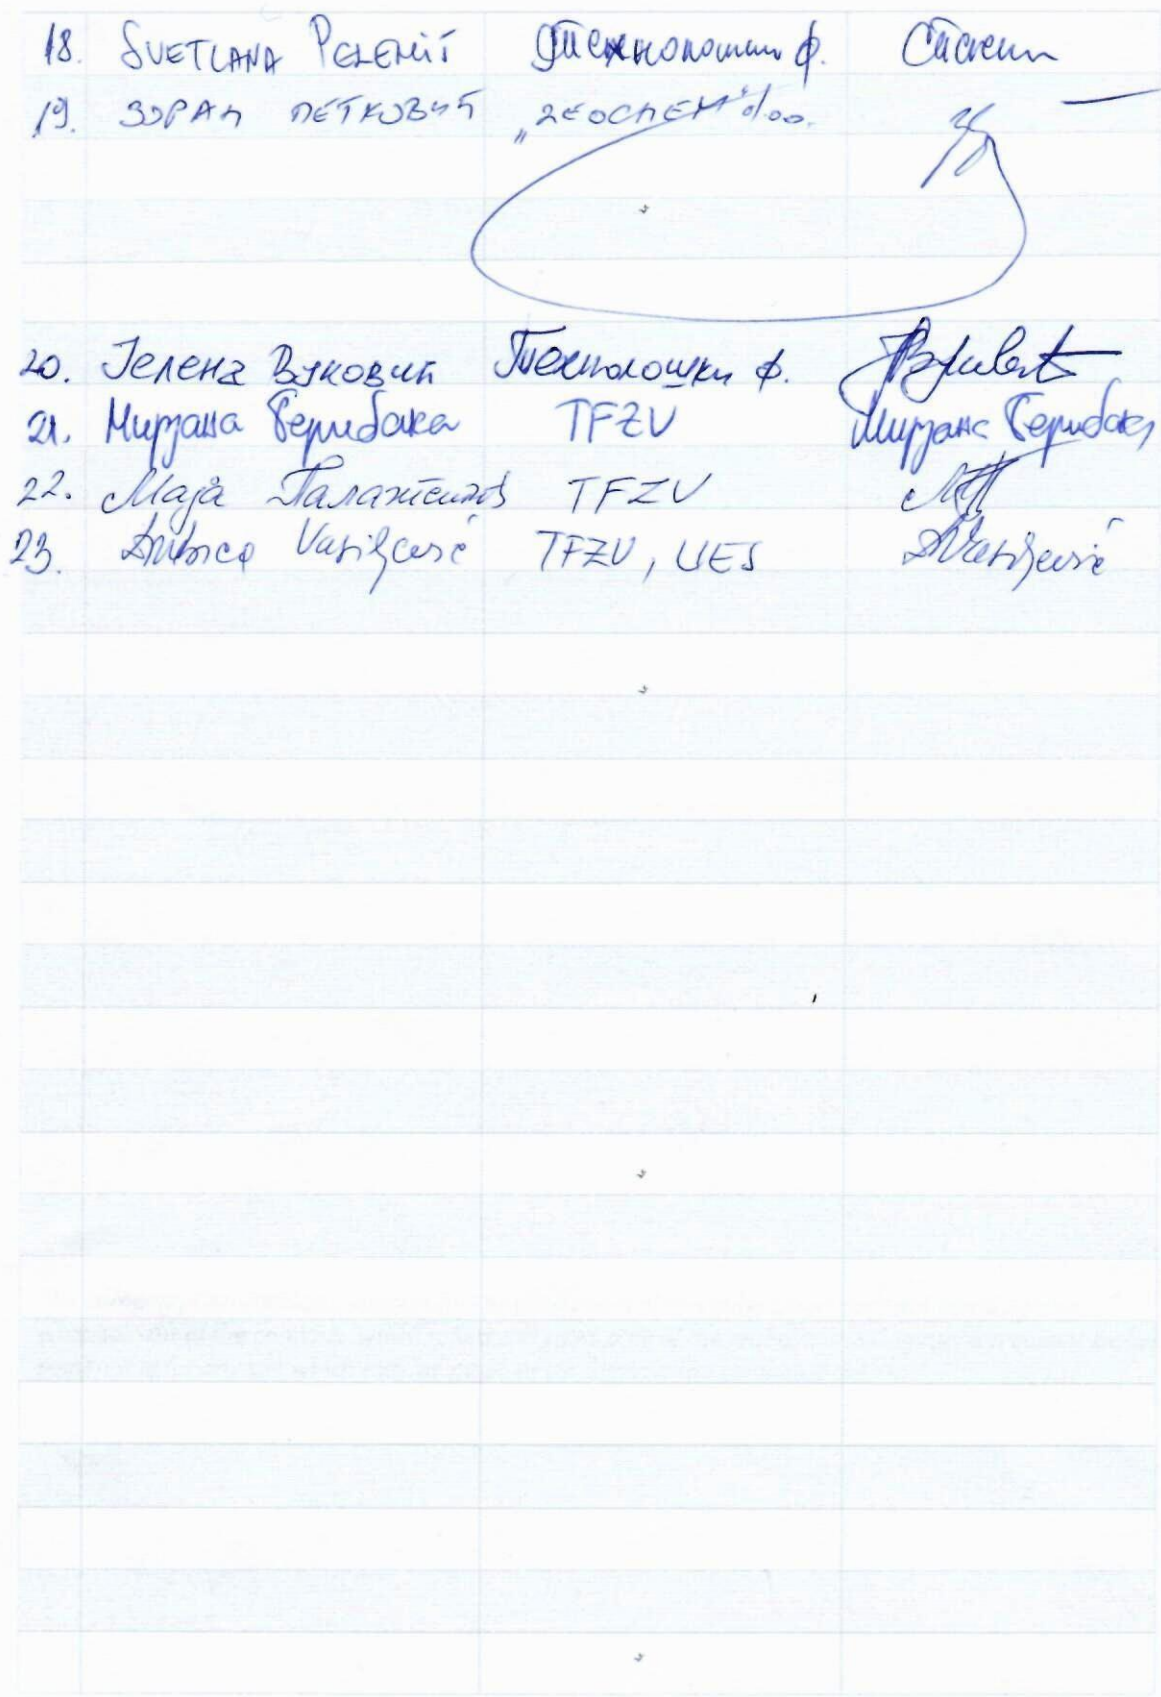 18. SVETLANA PELEMIŠ Технолошки ф.
19. ЗОРАН ПЕТКОВИЋ „ZEOCHEM" d.o.o.
20. Јелена Вуковић Технолошки ф.
21. Мирјана Берибака TFZV Мирјана Берибака
22. Маја TFZV
23. Dubica Vasiljević TFZV, UES DVasiljević